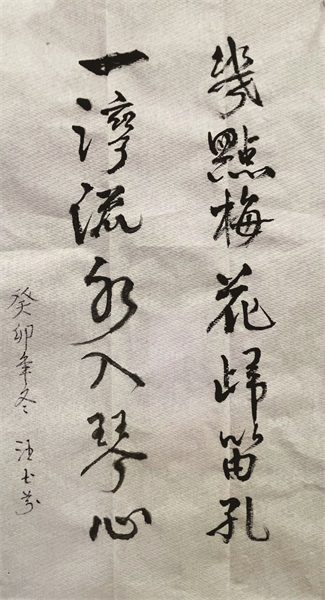 幾點梅花歸笛孔
一灣流水入琴心
癸卯年冬 汪玉芬